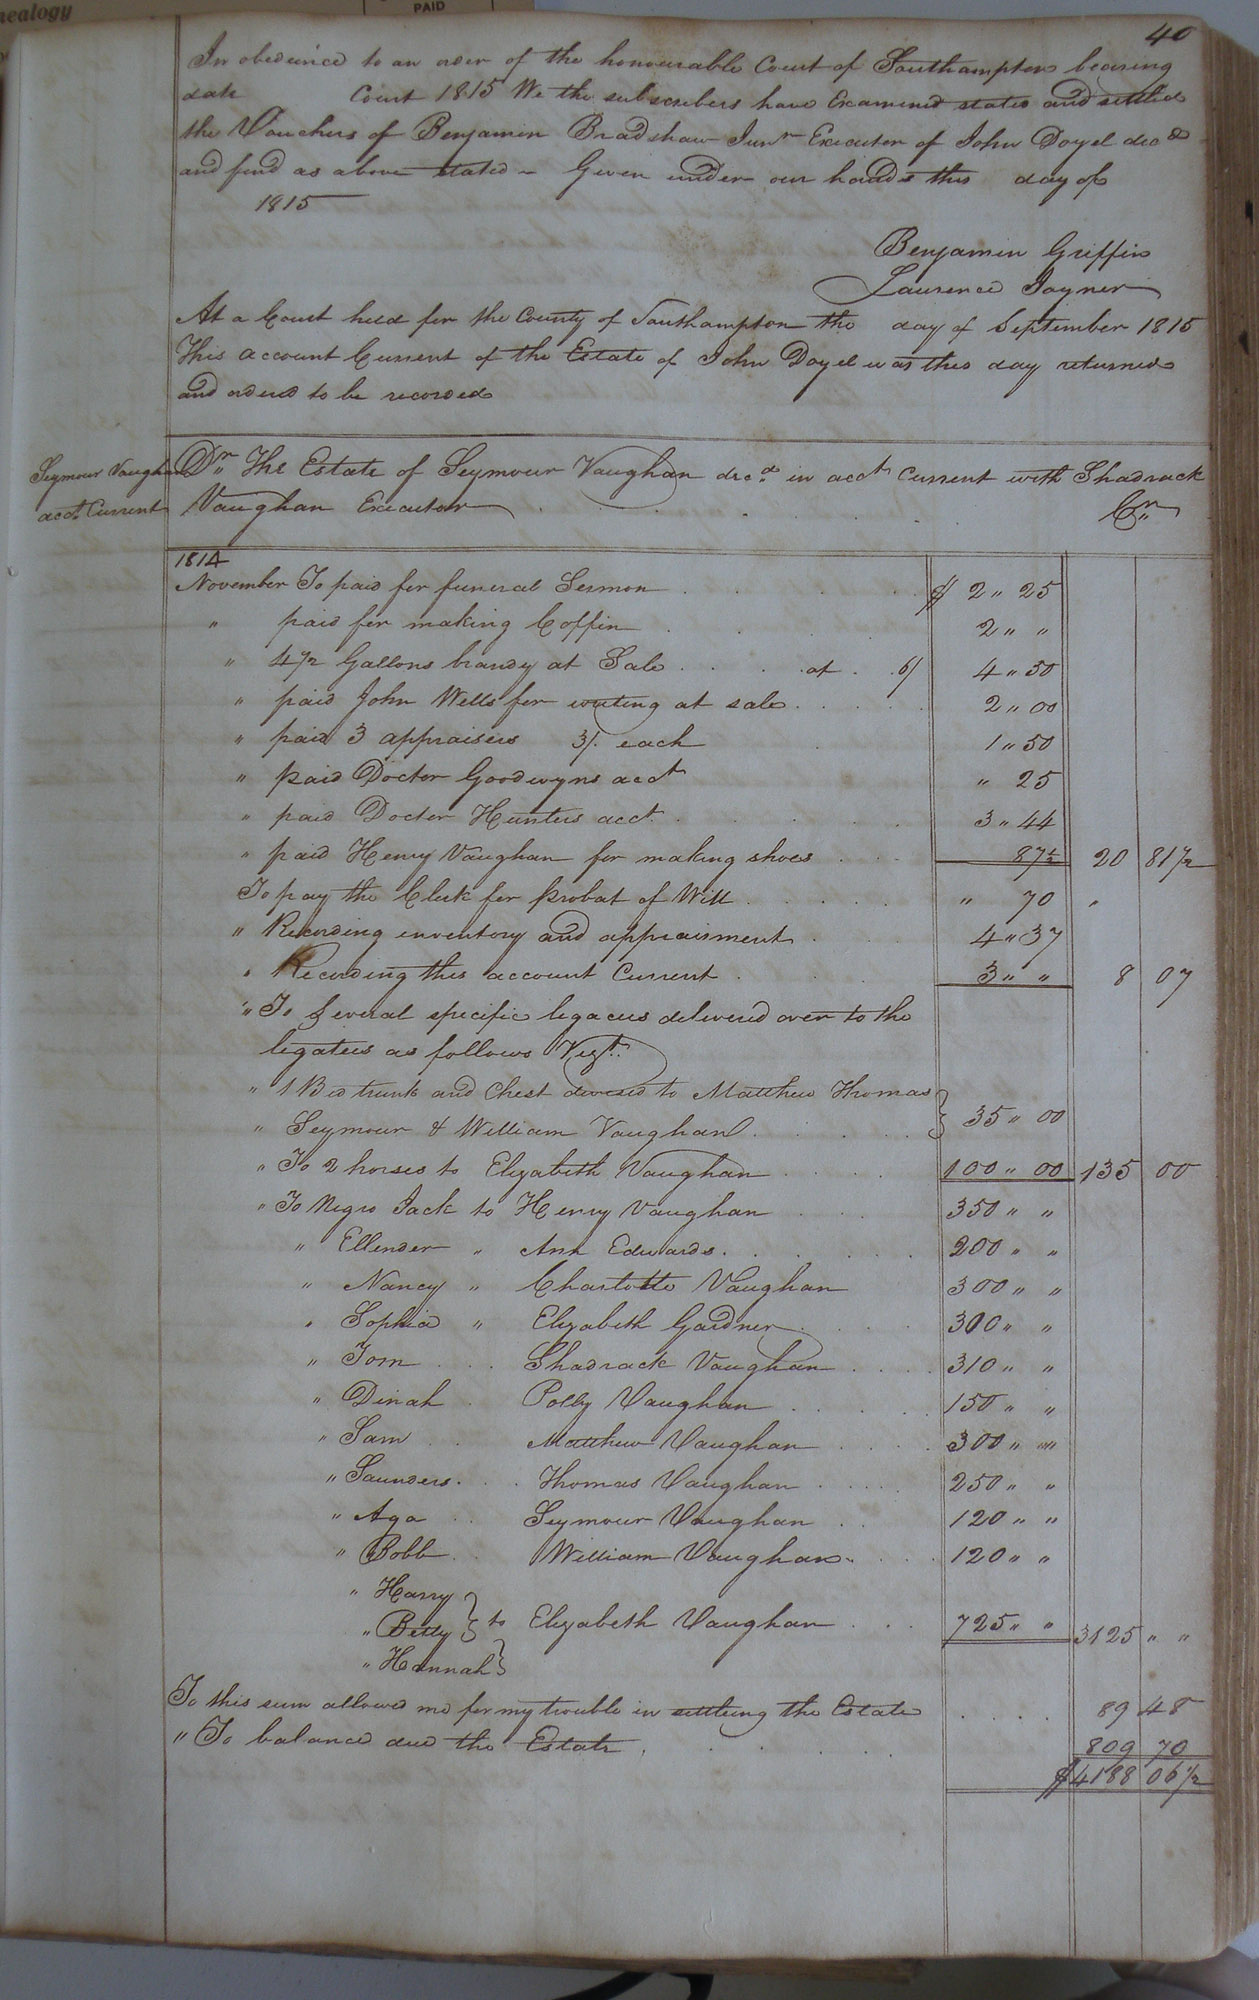 nealogy
PAID
40
In obedience to an order of the honourable Court of Southampton bearing
date Court 1815 We the subscribers have Examined stated and settled
the Vouchers of Benjamin Bradshaw Junr Executor of John Doyel decd
and find as above stated - Given under our hands this day of
1815
Benjamin Griffin
Laurence Joyner
At a Court held for the County of Southampton the day of September 1815
This account Current of the Estate of John Doyel was this day returned
and ordered to be recorded
Seymour Vaughan
acct. Current
Dr. The Estate of Seymour Vaughan decd. in acct Current with Shadrack
Vaughan Executor Cr.
1814
November To paid for funeral Sermon $ 2 " 25
" paid for making Coffin 2 " "
" 4 1/2 Gallons brandy at Sale at 6/ 4 " 50
" paid John Wells for writing at sale 2 " 00
" paid 3 appraisers 3/. each 1 " 50
" paid Doctor Goodwyns acct " 25
" paid Doctor Hunters acct. 3 " 44
" paid Henry Vaughan for making shoes 87 1/2 20 81 1/2
To pay the Clerk for probat of Will " 70 "
" Recording inventory and appraisment 4 " 37
" Recording this account Current 3 " " 8 07
" To several specific legacies delivered over to the
legatees as follows Vizt.
" 1 Bed trunk and Chest devised to Matthew Thomas } 35 " 00
" Seymour & William Vaughan
" To 2 horses to Elizabeth Vaughan 100 " 00 135 00
" To Negro Jack to Henry Vaughan 350 " "
" Ellender " Ann Edwards 200 " "
" Nancy " Charlotte Vaughan 300 " "
" Sophia " Elizabeth Gardner 300 " "
" Tom Shadrack Vaughan 310 " "
" Dinah Polly Vaughan 150 " "
" Sam Matthew Vaughan 300 " "
" Saunders Thomas Vaughan 250 " "
" Aga Seymour Vaughan 120 " "
" Bobb William Vaughan 120 " "
" Harry
" Betty } to Elizabeth Vaughan 725 " " 3125 " "
" Hannah }
To this sum allowed me for my trouble in settling the Estate 89 48
" To balance due the Estate 809 70
$ 4188 06 1/2